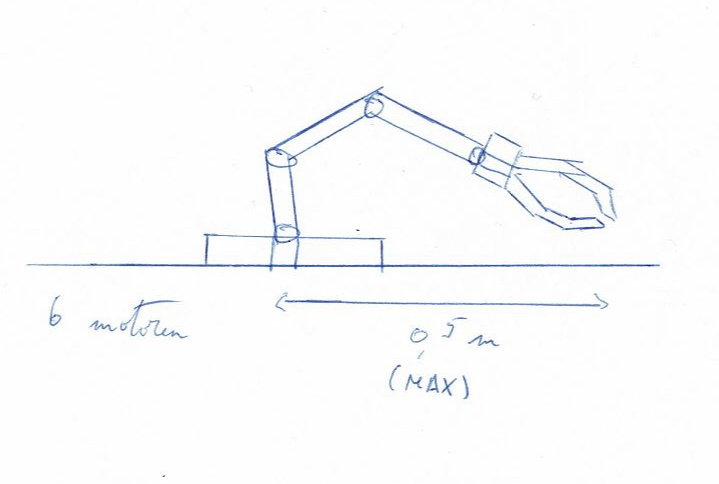 6 motoren
0,5 m
(MAX)